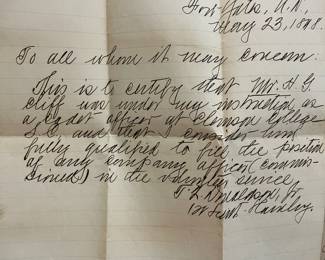 May 23, 1898.
To all whom it may concern:
This is to certify that Mr. H. G.
Cliff was under my instruction as
a Cadet officer at Clemson College
S.C. and that I consider him
fully qualified to fill the position
of any company officer (commis-
sioned) in the volunteer service,
T. Q. Donaldson, Jr.